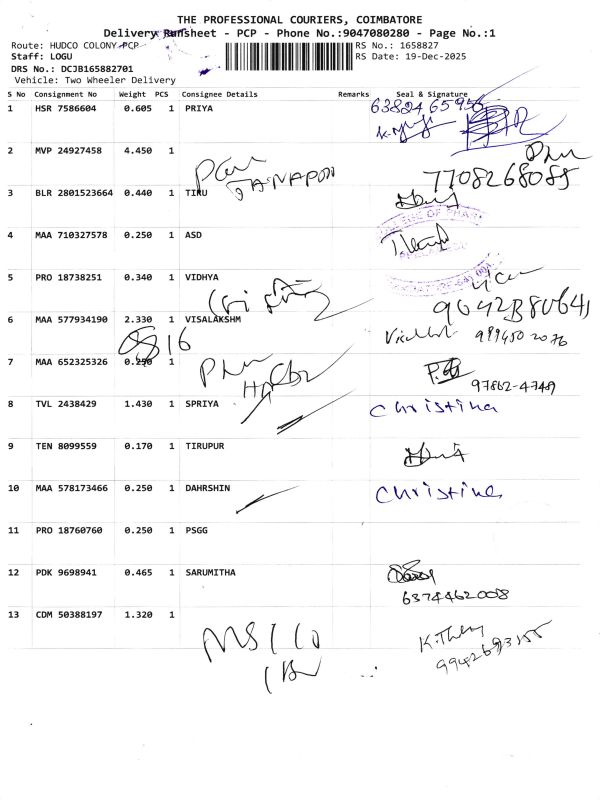 THE PROFESSIONAL COURIERS, COIMBATORE
Delivery Runsheet - PCP - Phone No.:9047080280 - Page No.:1
Route: HUDCO COLONY-PCP RS No.: 1658827
Staff: LOGU RS Date: 19-Dec-2025
DRS No.: DCJB165882701
Vehicle: Two Wheeler Delivery
S No Consignment No Weight PCS Consignee Details Remarks Seal & Signature
1 HSR 7586604 0.605 1 PRIYA
2 MVP 24927458 4.450 1
7708268085
3 BLR 2801523664 0.440 1 TIRU
4 MAA 710327578 0.250 1 ASD
5 PRO 18738251 0.340 1 VIDHYA
6 MAA 577934190 2.330 1 VISALAKSHM
16
7 MAA 652325326 0.250 1
97862-4749
8 TVL 2438429 1.430 1 SPRIYA Christina
9 TEN 8099559 0.170 1 TIRUPUR
10 MAA 578173466 0.250 1 DAHRSHIN Christina
11 PRO 18760760 0.250 1 PSGG
12 PDK 9698941 0.465 1 SARUMITHA
6374462008
13 CDM 50388197 1.320 1